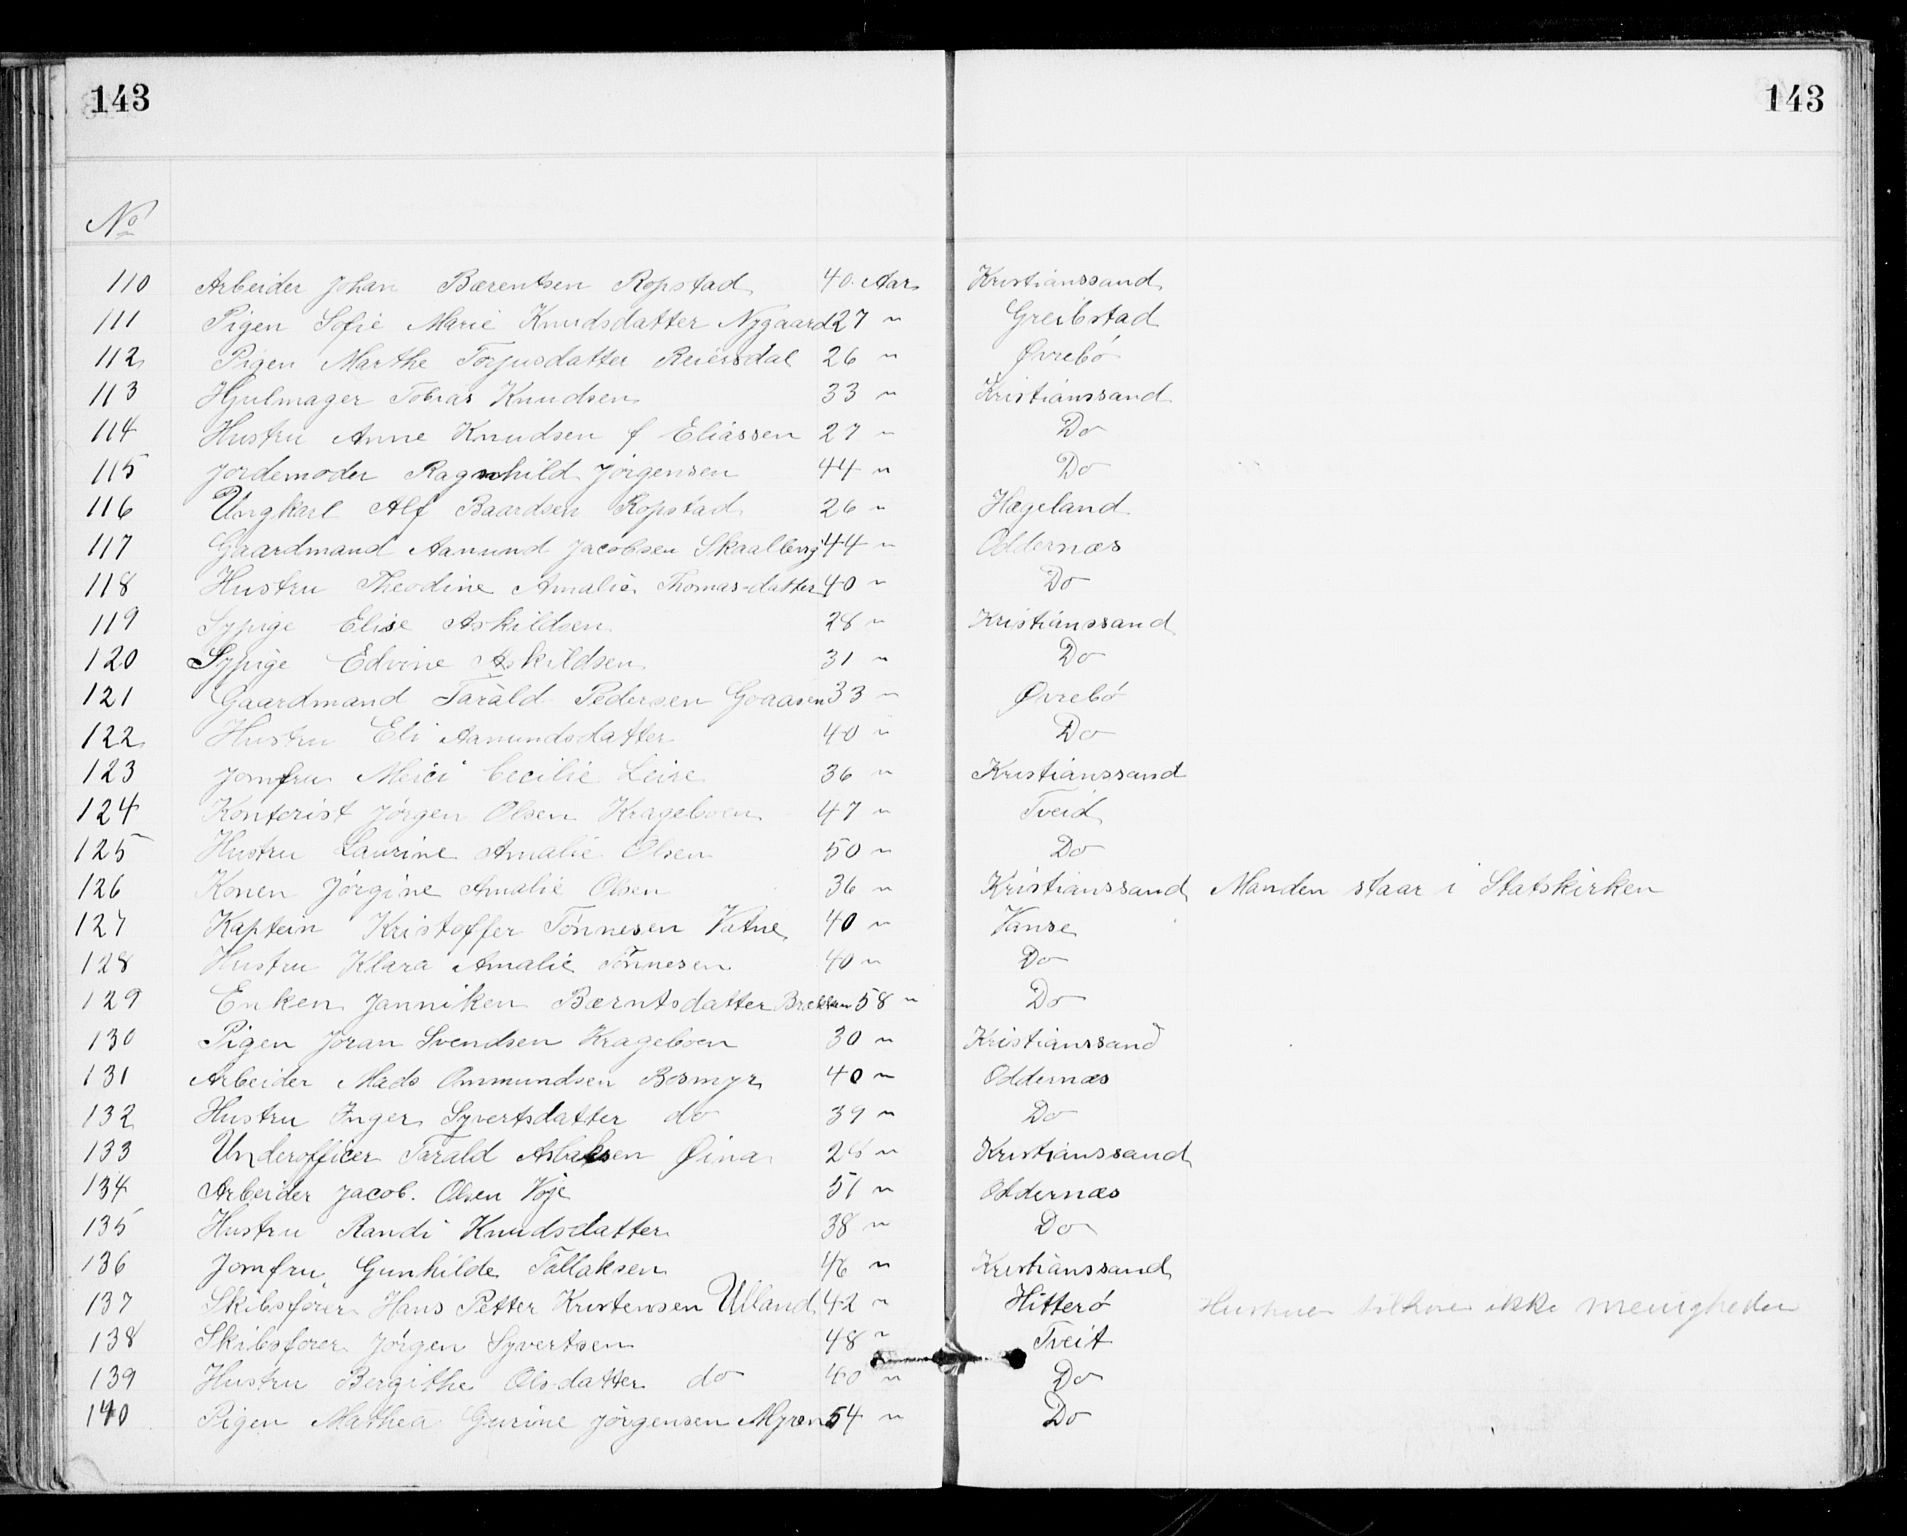 143 143
No
110 Arbeider Johan Bærentsen Ropstad 40 Aar Kristianssand
111 Pigen Sofie Marie Knudsdatter Nygaard 27 " Greibstad
112 Pigen Marthe Torjusdatter Reiersdal 26 " Øvrebö
113 Hjulmager Tobias Knudsen 33 " Kristianssand
114 Hustru Anne Knudsen f Eliassen 27 " Do
115 Jordemoder Ragnhild Jörgensen 44 " Do
116 Ungkarl Alf Baardsen Ropstad 26 " Hægeland
117 Gaardmand Aanund Jacobsen Skaalberg 44 " Oddernæs
118 Hustru Theodine Amalie Thomas-datter 40 " Do
119 Sypige Elise Askildsen 28 " Kristianssand
120 Sypige Edvine Askildsen 31 " Do
121 Gaardmand Tarald Pedersen Goaasen 33 " Øvrebö
122 Hustru Eli Aanundsdatter 40 " Do
123 Jomfru Meici Cecilie Leire 36 " Kristianssand
124 Kontorist Jörgen Olsen Krageboen 47 " Tveid
125 Hustru Laurine Amalie Olsen 50 " Do
126 Konen Jörgine Amalie Olsen 36 " Kristianssand Manden staar i Statskirken
127 Kaptein Kristoffer Tönnesen Vatne 40 " Vanse
128 Hustru Klara Amalie Tönnesen 40 " Do
129 Enken Janniken Bærntsdatter 58 " Do
130 Pigen Joran Svendsen Krageboen 30 " Kristianssand
131 Arbeider Mads Ommundsen Bosmyr 40 " Oddernæs
132 Hustru Inger Syvertsdatter do 39 " Do
133 Underofficer Tarald Aslaksen Øina 26 " Kristianssand
134 Arbeider Jacob. Olsen Voje 51 " Oddernæs
135 Hustru Randi Knudsdatter 38 " Do
136 Jomfru Gunhilde Tallaksen 48 " Kristianssand
137 Skibsfører Hans Petter Kristensen Ulland 42 " Hitterö Hustruen tilhører ikke menigheden
138 Skibsfører Jörgen Syvertsen 48 " Tveit
139 Hustru Bergithe Olsdatter do 40 " Do
140 Pigen Mathea Gurine Jörgensen Myren 54 " Do